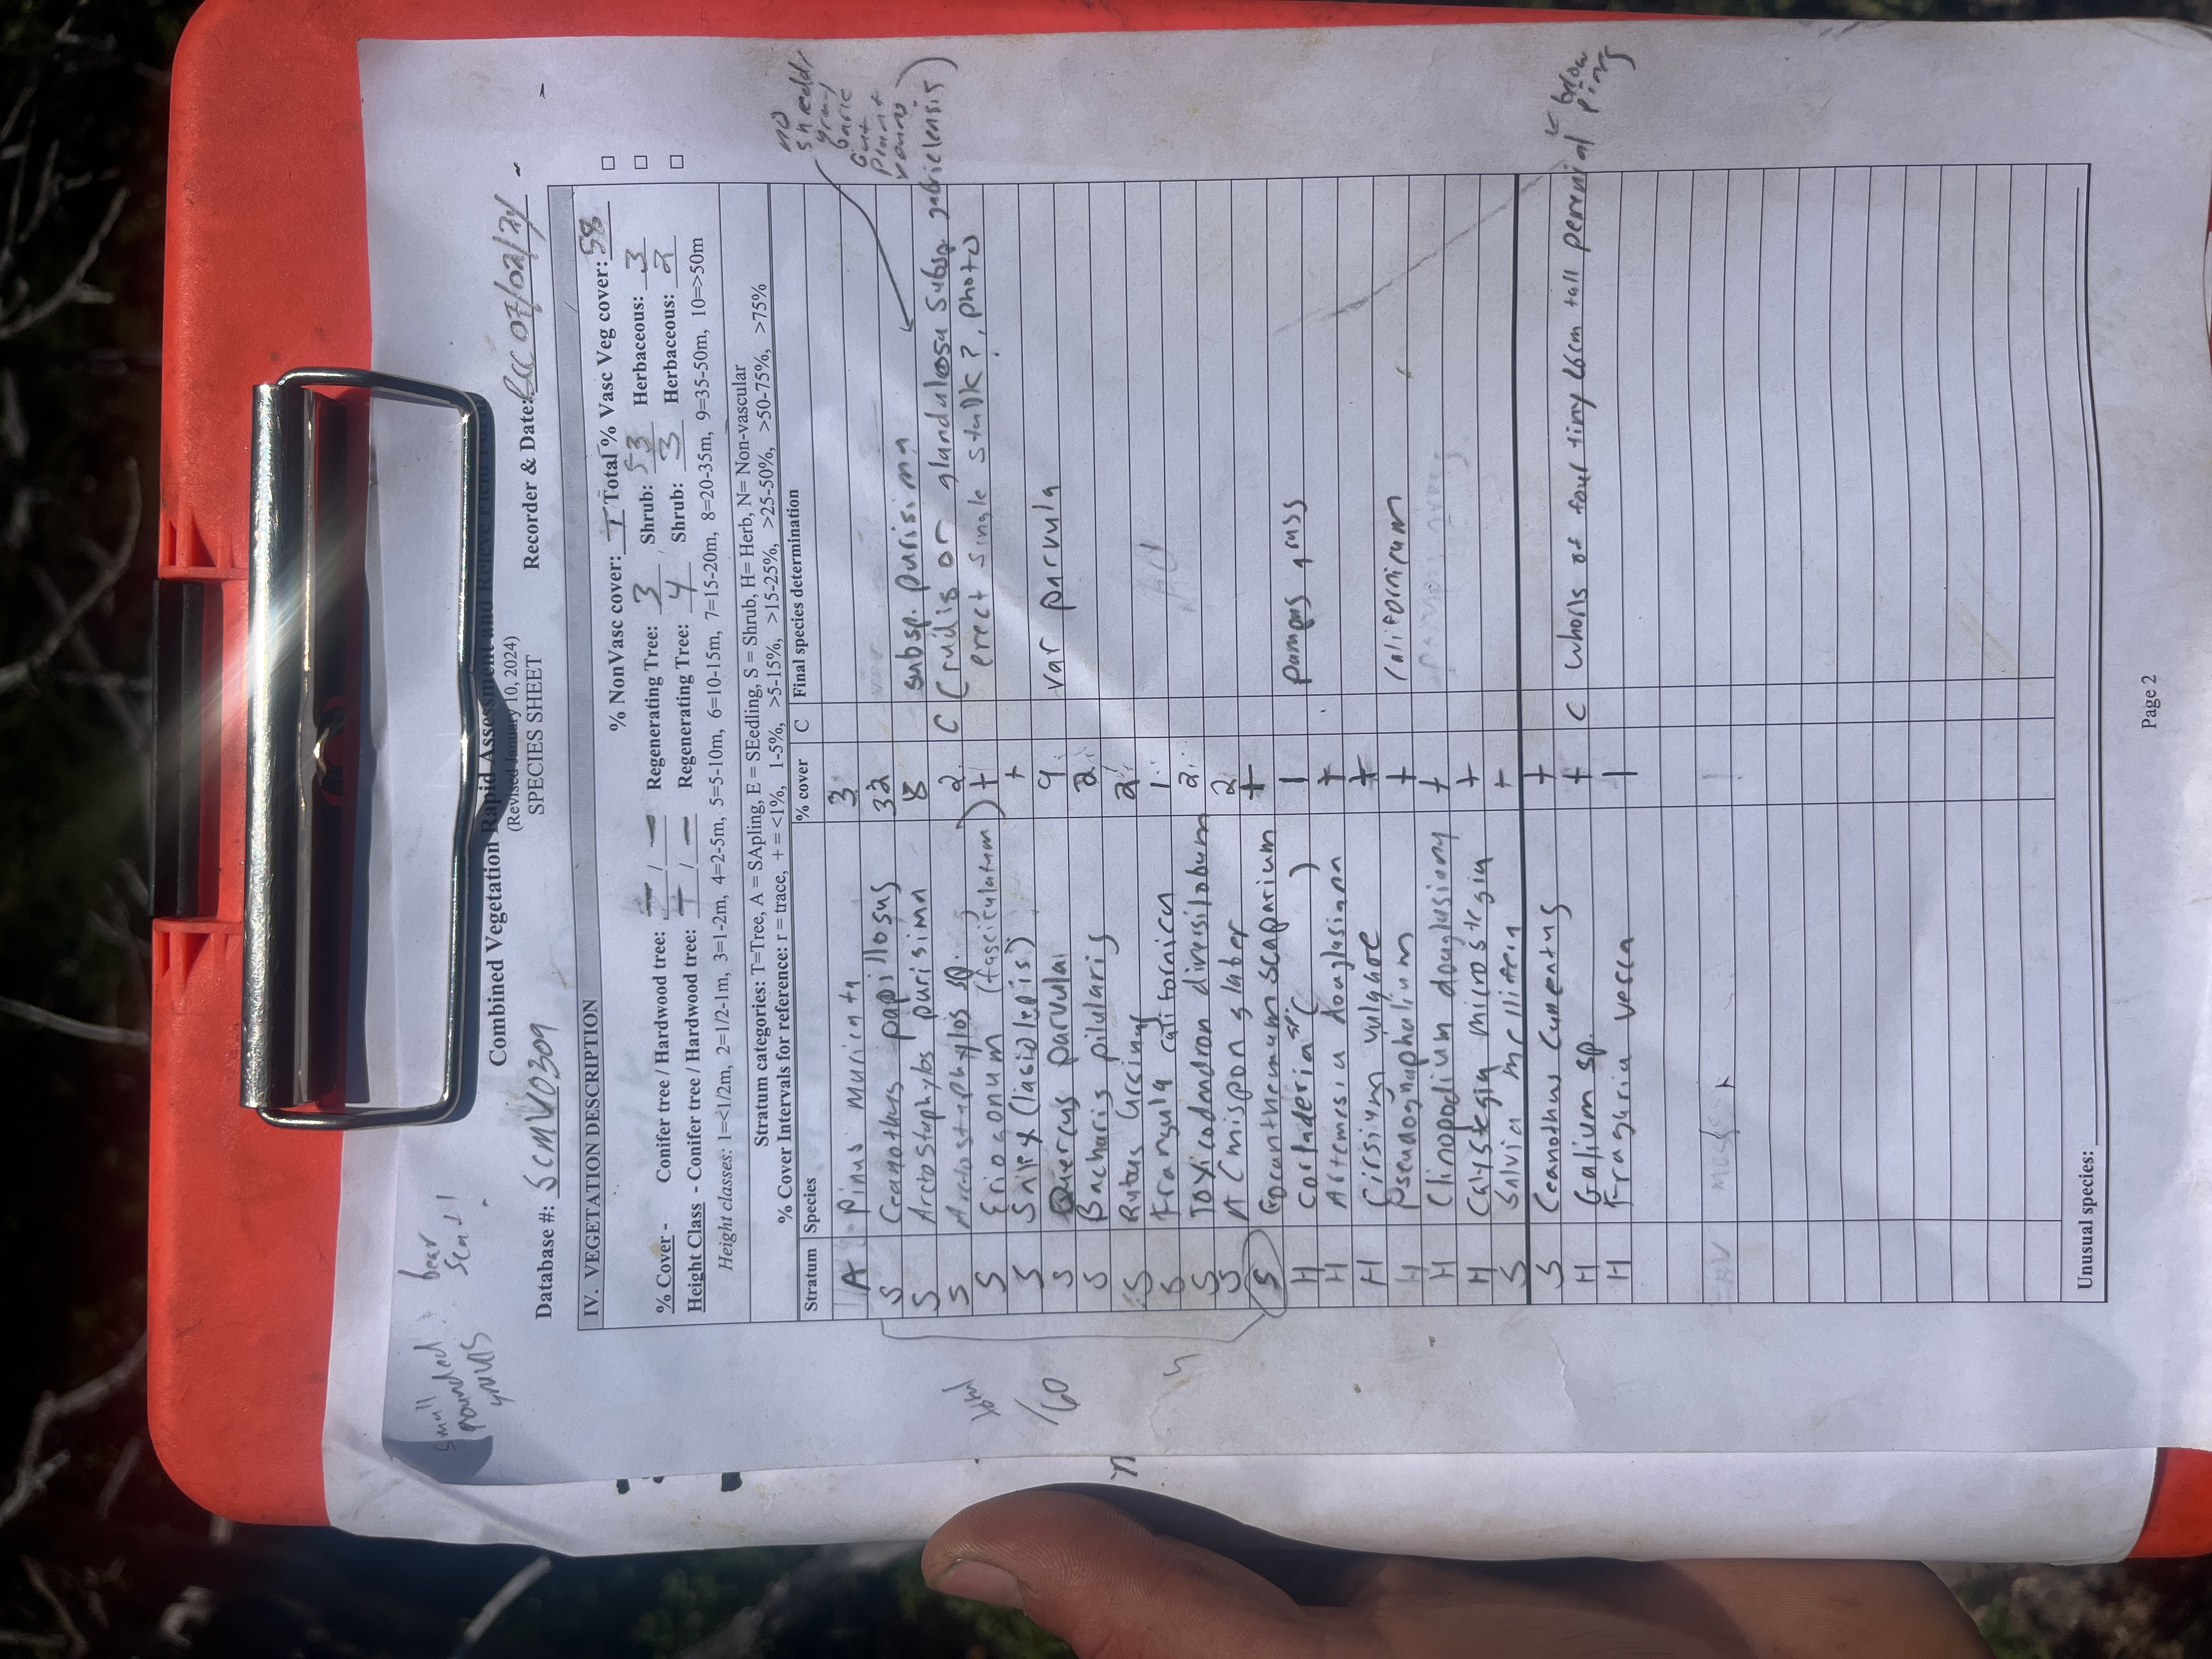 small rounded galls
bear scat!
Combined Vegetation Rapid Assessment and Relevé Field Form
(Revised January 10, 2024)
SPECIES SHEET
Database #: SCMV0309 Recorder & Date: RCC 07/02/24
IV. VEGETATION DESCRIPTION
% NonVasc cover: T Total % Vasc Veg cover: 58
% Cover - Conifer tree / Hardwood tree: — / — Regenerating Tree: 3 Shrub: 53 Herbaceous: 3
Height Class - Conifer tree / Hardwood tree: — / — Regenerating Tree: 4 Shrub: 3 Herbaceous: 2
Height classes: 1=<1/2m, 2=1/2-1m, 3=1-2m, 4=2-5m, 5=5-10m, 6=10-15m, 7=15-20m, 8=20-35m, 9=35-50m, 10=>50m
Stratum categories: T=Tree, A = SApling, E = SEedling, S = Shrub, H= Herb, N= Non-vascular
% Cover Intervals for reference: r = trace, + = <1%, 1-5%, >5-15%, >15-25%, >25-50%, >50-75%, >75%
Stratum Species % cover C Final species determination
A Pinus muricata 3
S Ceanothus papillosus 32
S Arctostaphylos purisima 8 subsp. purisima
S Arctostaphylos sp. 2 C (rudis or glandulosa subsp gabrielensis)
S Eriogonum (fasciculatum) + erect single stalk?, photo
S Salix (lasiolepis) +
S Quercus parvula 9 var parvula
S Baccharis pilularis 2
S Rubus ursinus 2
S Frangula californica 1
S Toxicodendron diversilobum 2
S Acmispon glaber 2
S Crocanthemum scoparium +
H Cortaderia sp. ( ) 1 pampas grass
H Artemisia douglasiana +
H Cirsium vulgare +
H Pseudognaphalium + californicum
H Clinopodium douglasiany +
H Calystegia microstegia +
S Salvia mellifera +
S Ceanothus cuneatus +
H Galium sp. + C whorls of four tiny <6cm tall perenial
H Fragaria vesca 1
no shredd, gray barie
plant young
← below pines
total
/60
Unusual species:
Page 2